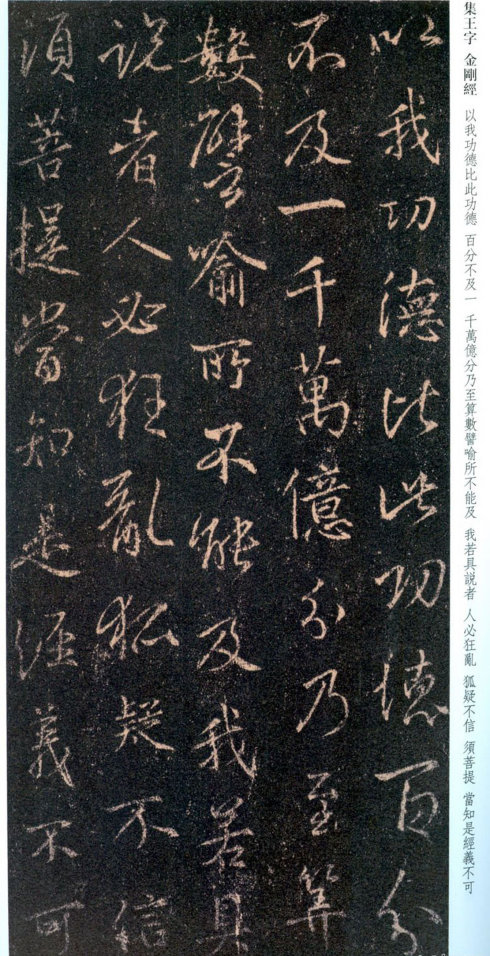 集王字 金剛經 以我功德比此功德 百分不及一 千萬億分乃至算數譬喻所不能及 我若具説者 人必狂亂 狐疑不信 須菩提 當知是經義不可
以我功德比此功德百分
不及一千萬億分乃至算
數譬喻所不能及我若具
説者人必狂亂狐疑不信
須菩提當知是經義不可